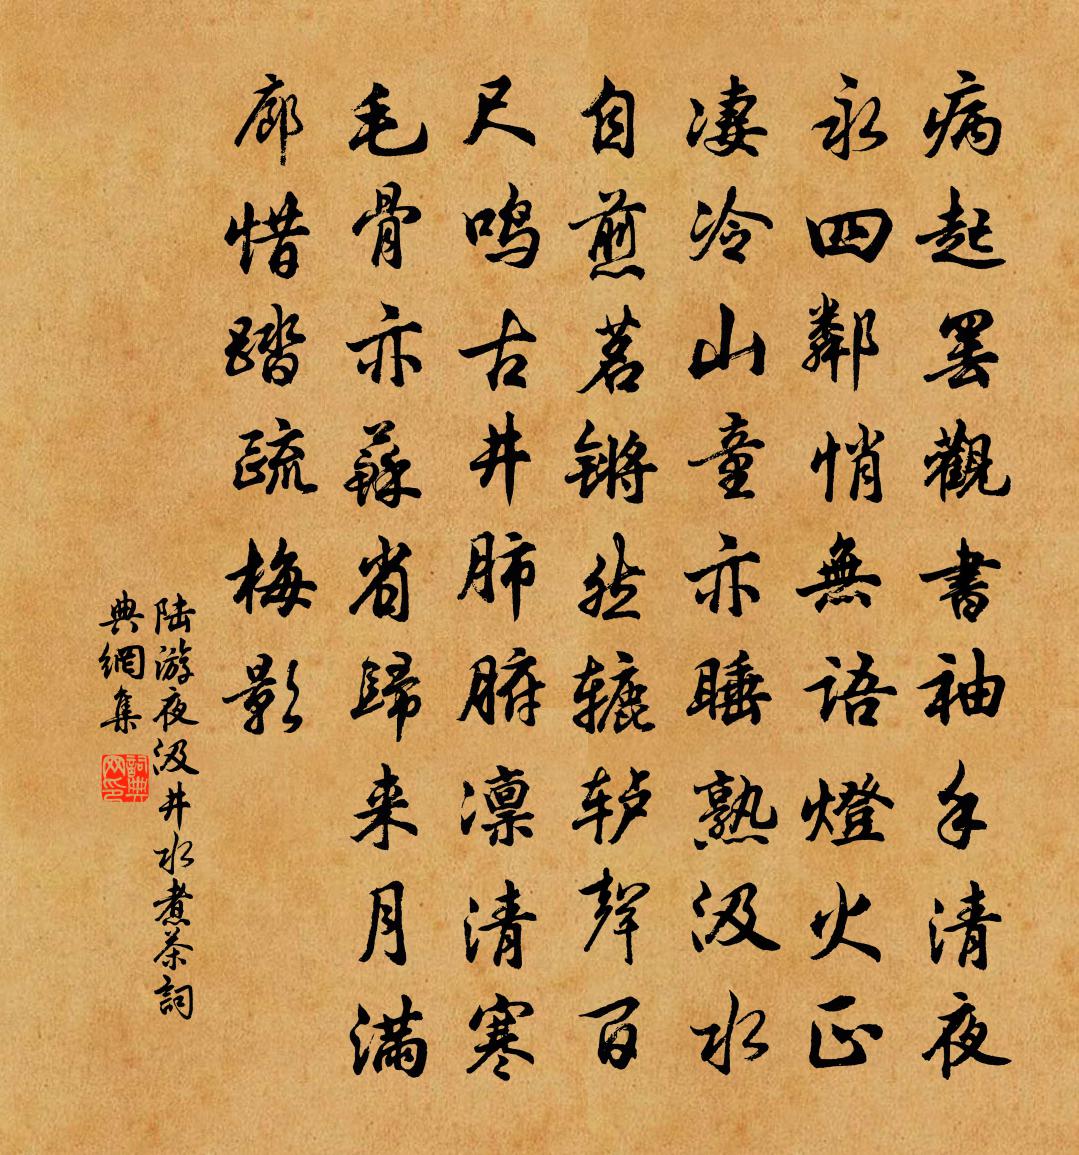 病起罢觀書袖手清夜
永四鄰悄無語燈火正
凄冷山童亦睡熟汲水
自煎茗锵然辘轳聲百
尺鳴古井肺腑凛清寒
毛骨亦蘇省歸来月满
廊惜踏疏梅影
陆游夜汲井水煮茶詞
典網集
詞典网印